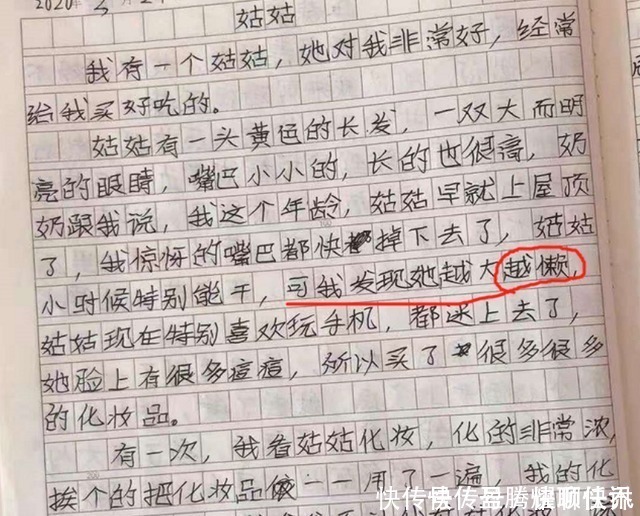 2020年3月2
姑姑
我有一个姑姑,她对我非常好,经常
给我买好吃的。
姑姑有一头黄色的长发,一双大而明
亮的眼睛,嘴巴小小的,长的也很高,奶
奶跟我说,我这个年龄,姑姑早就上屋顶
了,我惊讶的嘴巴都快掉下去了,姑姑
小时候特别能干,可我发现她越大越懒,
姑姑现在特别喜欢玩手机,都迷上去了,
她脸上有很多痘痘,所以买了很多很多
的化妆品。
有一次,我看姑姑化妆,化的非常浓,
挨个的把化妆品一一用了一遍,我的化
快传号